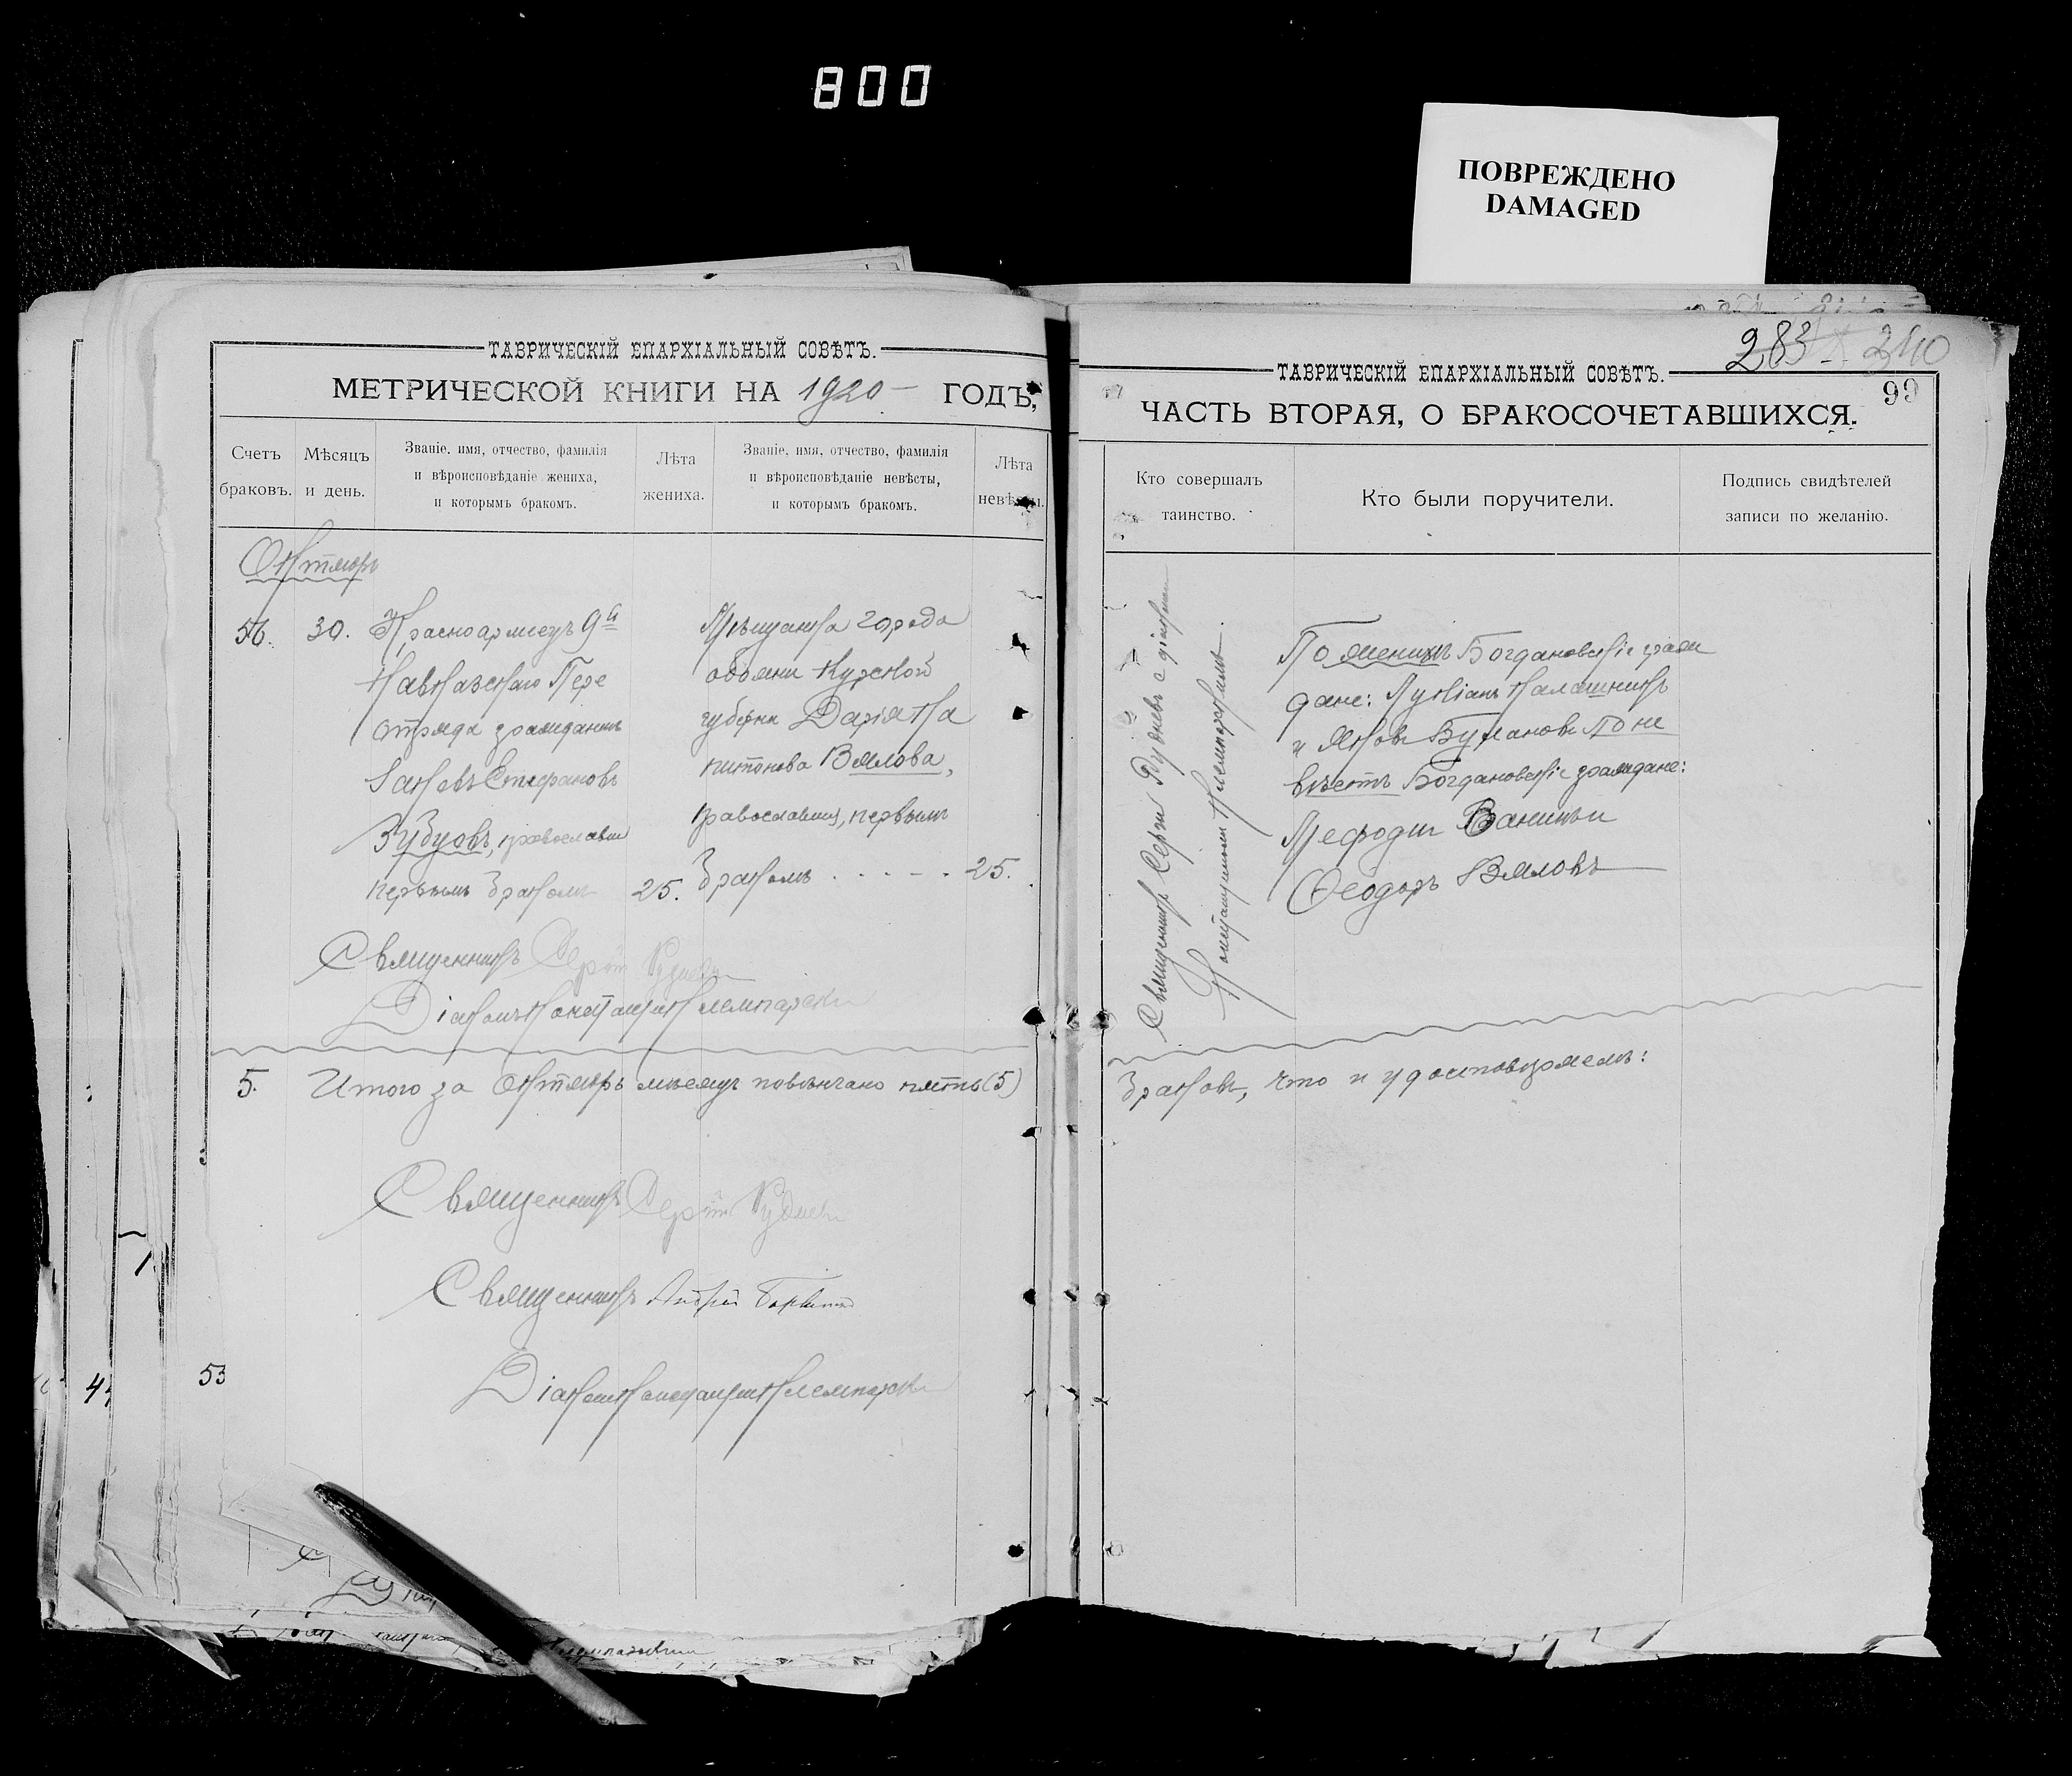 800
ПОВРЕЖДЕНО
DAMAGED
ТАВРИЧЕСКІЙ ЕПАРХІАЛЬНЫЙ СОВѢТЪ.
МЕТРИЧЕСКОЙ КНИГИ НА 1920 ГОДЪ,
Счетъ браковъ.
Мѣсяцъ и день.
Званіе, имя, отчество, фамилія
и вѣроисповѣданіе жениха,
и которымъ бракомъ.
Лѣта
жениха.
Званіе, имя, отчество, фамилія
и вѣроисповѣданіе невѣсты,
и которымъ бракомъ.
Лѣта
невѣсты.
Октябрь
56. 30.
Красноармеецъ 9й
Кавказскаго Пере
отряда гражданинъ
Іаковъ Стефановъ
Зубцовъ, православн
первымъ бракомъ 25.
Мѣщанка города
Обояни Курской
губерни Дарія Ка
питонова Вялова,
православная, первымъ
бракомъ . . . . . 25.
Священникъ Сергій Рудневъ
Діаконъ Константинъ
5. Итого за Октябрь мѣсяцъ повѣнчано пять (5)
Священникъ Сергій Рудневъ
Священникъ Андрей
Діаконъ Константинъ
53
283 240
99
ТАВРИЧЕСКІЙ ЕПАРХІАЛЬНЫЙ СОВѢТЪ.
ЧАСТЬ ВТОРАЯ, О БРАКОСОЧЕТАВШИХСЯ.
Кто совершалъ
таинство.
Кто были поручители.
Подпись свидѣтелей
записи по желанію.
Священникъ Сергій Рудневъ с діакономъ
Константиномъ
По женихѣ Богдановскіе граж
дане: Лукіанъ Калашникъ
и Яковъ По не
вѣстѣ Богдановскіе граждане:
Мефодій
Ѳеодоръ Вяловъ
браковъ, что и удостовѣряемъ: